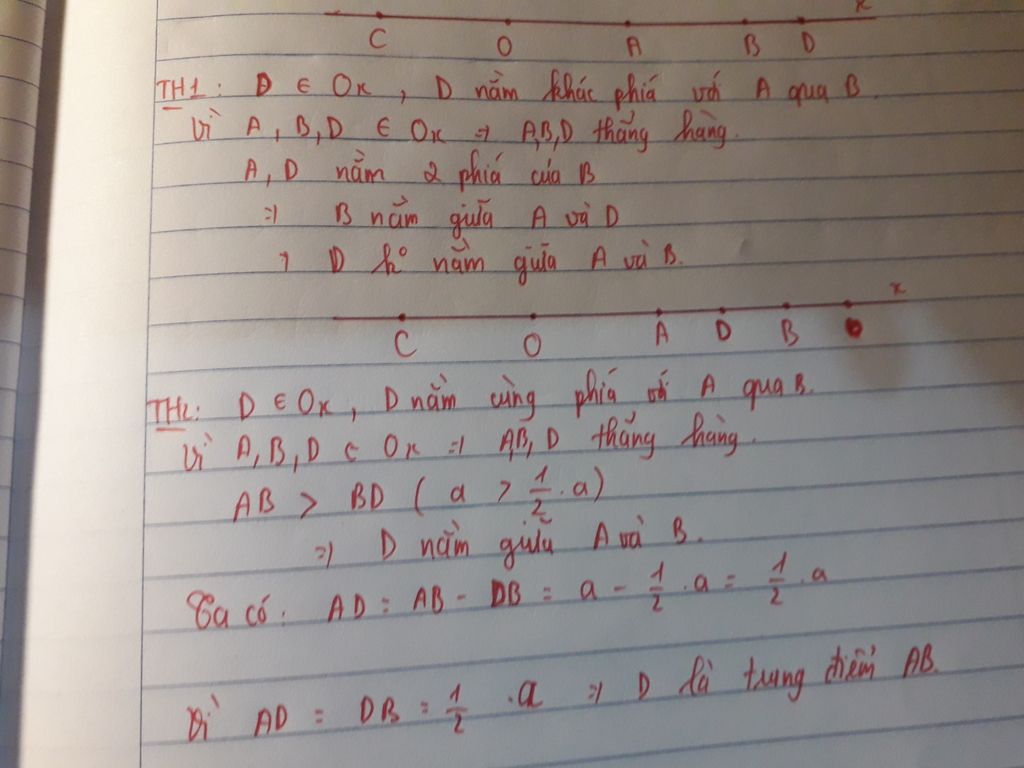 x
C O A B D
TH1: D ∈ Ox, D nằm khác phía với A qua B
Vì A, B, D ∈ Ox => A,B,D thẳng hàng.
A, D nằm 2 phía của B
=> B nằm giữa A và D
> D kº nằm giữa A và B.
x
C O A D B
TH2: D ∈ Ox, D nằm cùng phía với A qua B.
Vì A, B, D ∈ Ox => A,B, D thẳng hàng.
AB > BD ( a > 1/2 . a)
=> D nằm giữa A và B.
Ta có: AD = AB - DB = a - 1/2 . a = 1/2 . a
Vì AD = DB = 1/2 . a => D là trung điểm AB.